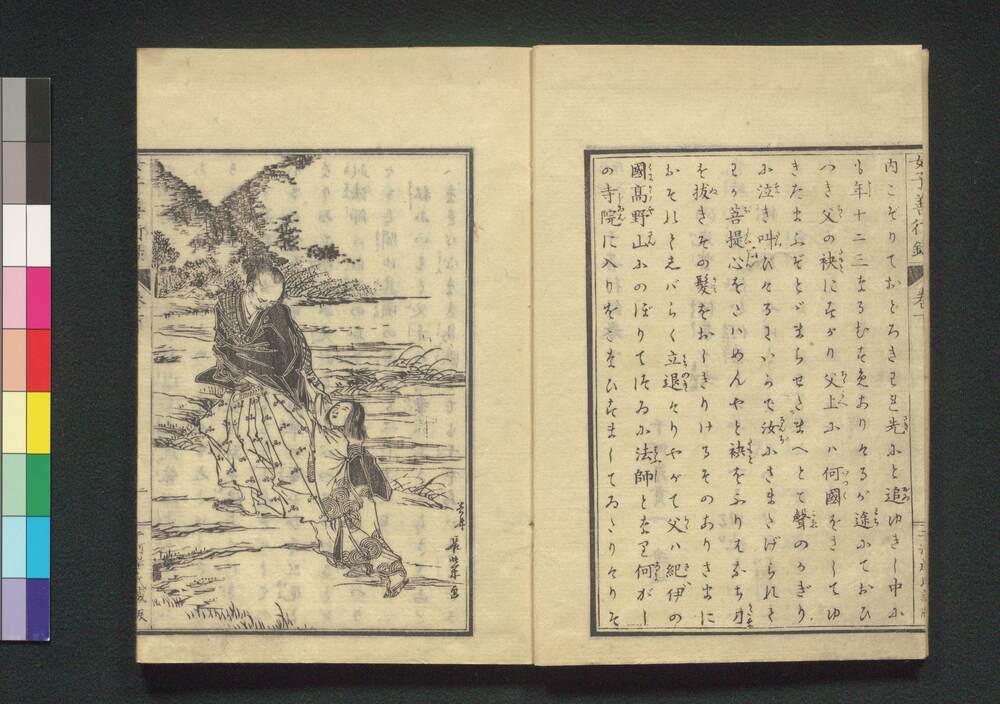 内こぞりておどろきわれ先ふと追ゆきし中ふ
も年十二三なるむすめありけるが途ふておひ
つき父の袂にすがり父上ふハ何國をさしてゆ
きたまふぞとゞまらせたまへとて聲のかぎり
ふ泣き叫びけるにいらで汝ふさまたげられて
わが菩提心をさいめんやと袂をふりはなち刀
を抜きその髪をおしきりけるそのありさまに
おそれてしバらく立退けりやがて父ハ紀伊の
國高野山ふのぼりてつゐふ法師となり何がし
の寺院に入りをこなひすましてゐたりけりそ
女子善行錄
卷一